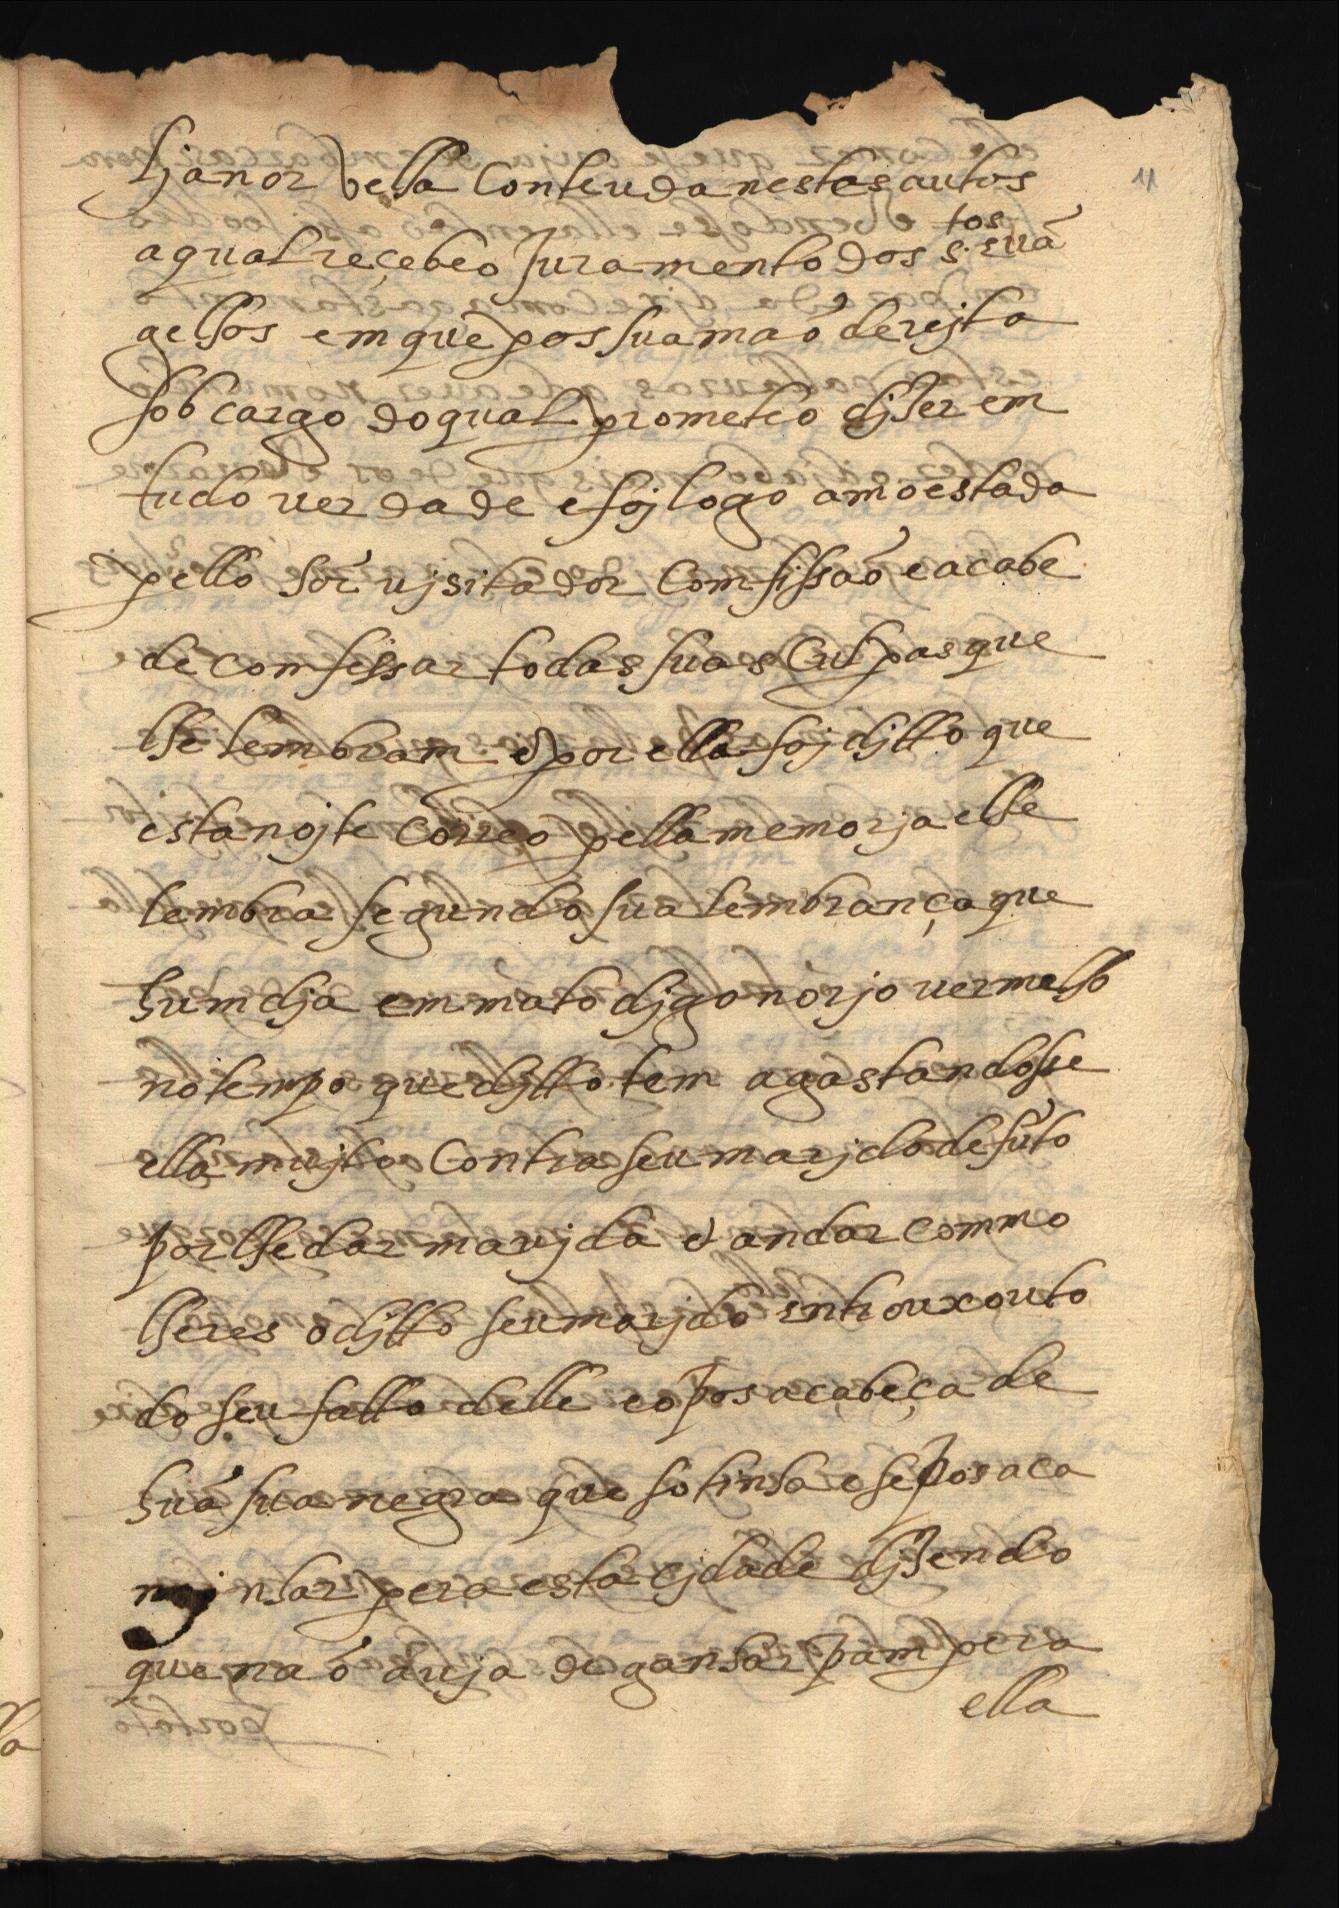 11
lianor velha Conteuda nestes autos
a qual reçebeo Juramento dos s.tos euã
gelhos em que pos sua maõ dereyta
sob cargo do qual prometeo djzer em
tudo verdade e foj logo amoestada
pello sor ujsitador Comfissaõ e acabe
de comfessar todas suas Culpas que
lhe lembram e por ella foj djtto que
esta nojte Correo pella memorja e lhe
lembra segundo sua lembrança que
hum dja em mato djgo no rjo vermelho
no tempo que djtto tem agastandosse
ella mujto Contra seu marjdo defũto
por lhe dar ma vjda e andar com mo
lheres o djtto seu marjdo
do seu fatto delle e o pos a cabeça de
huã sua negra que so tinha e se pos a ca
mjnhar pera esta cjdade djzendo
que naõ avja de ganhar pam pera
ella